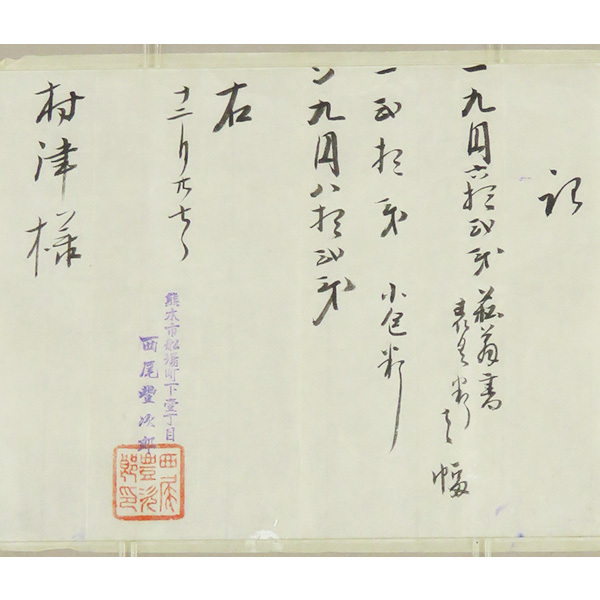 記
一九円六拾弐銭 蘇翁書
表具料 壱幅
一弐拾銭 小包料
〆九円八拾弐銭
右
十二月廿七日
熊本市船場町下壹丁目
西尾豐次郎
西尾豐次郎印
村津様